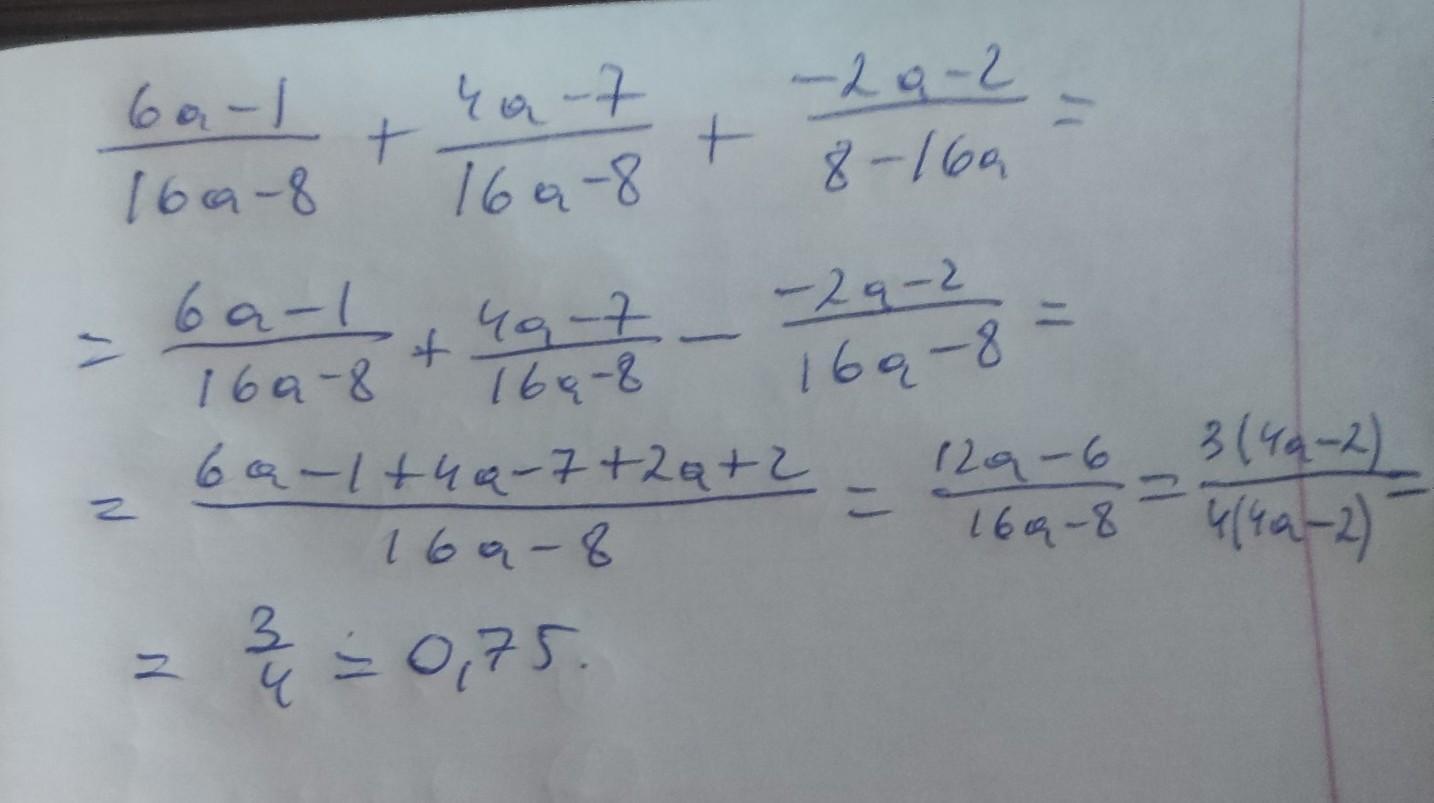 \frac{6a-1}{16a-8} + \frac{4a-7}{16a-8} + \frac{-2a-2}{8-16a} =
= \frac{6a-1}{16a-8} + \frac{4a-7}{16a-8} - \frac{-2a-2}{16a-8} =
= \frac{6a-1+4a-7+2a+2}{16a-8} = \frac{12a-6}{16a-8} = \frac{3(4a-2)}{4(4a-2)} =
= \frac{3}{4} = 0,75.